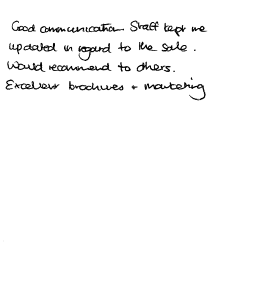 Good communication. Staff kept me
updated in regard to the sale.
Would recommend to others.
Excellent brochures + marketing